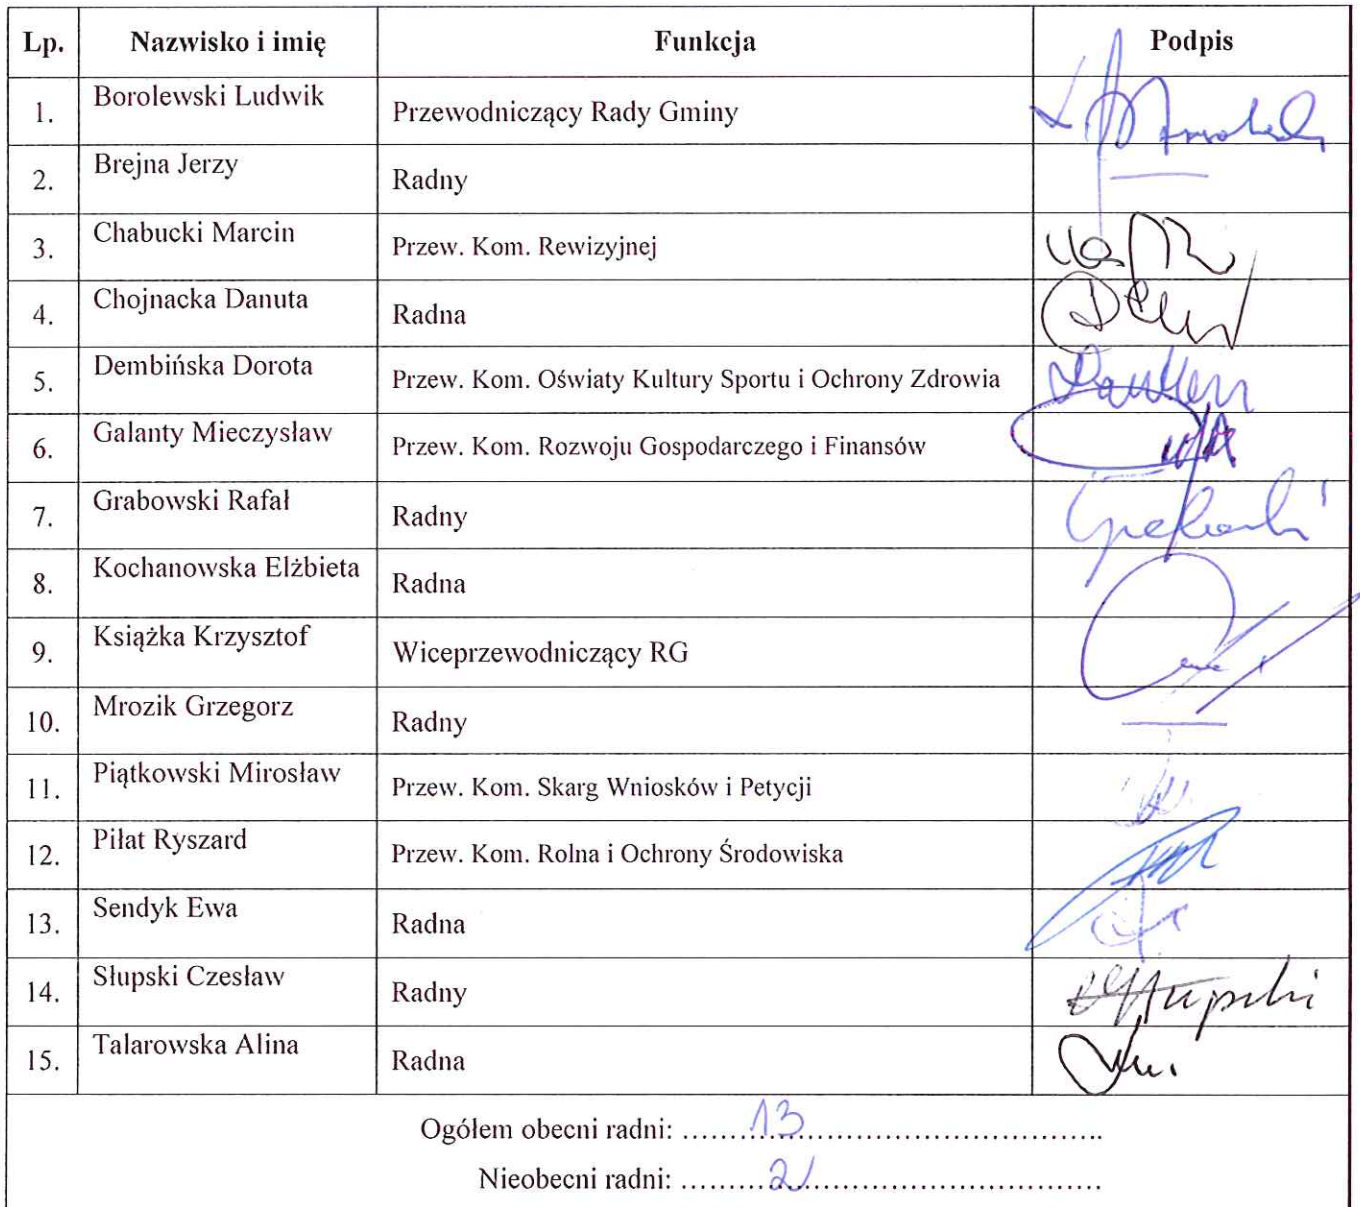 Lp. Nazwisko i imię Funkcja Podpis
1. Borolewski Ludwik Przewodniczący Rady Gminy
2. Brejna Jerzy Radny
3. Chabucki Marcin Przew. Kom. Rewizyjnej
4. Chojnacka Danuta Radna
5. Dembińska Dorota Przew. Kom. Oświaty Kultury Sportu i Ochrony Zdrowia
6. Galanty Mieczysław Przew. Kom. Rozwoju Gospodarczego i Finansów
7. Grabowski Rafał Radny
8. Kochanowska Elżbieta Radna
9. Książka Krzysztof Wiceprzewodniczący RG
10. Mrozik Grzegorz Radny
11. Piątkowski Mirosław Przew. Kom. Skarg Wniosków i Petycji
12. Piłat Ryszard Przew. Kom. Rolna i Ochrony Środowiska
13. Sendyk Ewa Radna
14. Słupski Czesław Radny
15. Talarowska Alina Radna
Ogółem obecni radni: 13
Nieobecni radni: 2